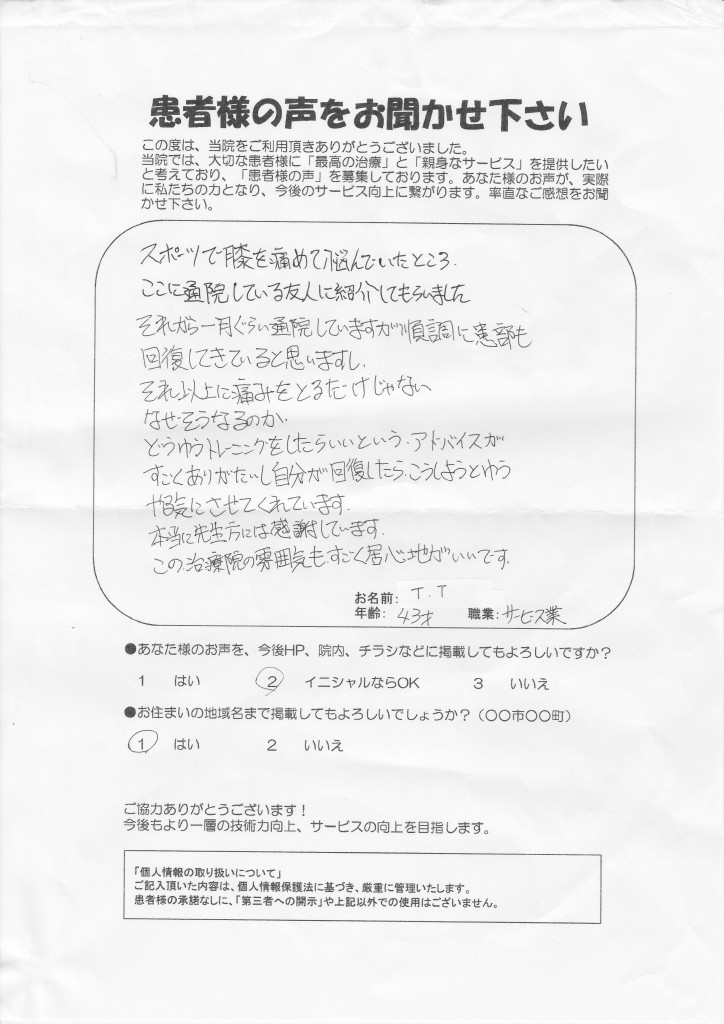 患者様の声をお聞かせ下さい
この度は、当院をご利用頂きありがとうございました。
当院では、大切な患者様に「最高の治療」と「親身なサービス」を提供したい
と考えており、「患者様の声」を募集しております。あなた様のお声が、実際
に私たちの力となり、今後のサービス向上に繋がります。率直なご感想をお聞
かせ下さい。
スポーツで膝を痛めて悩んでいたところ、
ここに通院している友人に紹介してもらいました
それから一月ぐらい通院していますが順調に患部も
回復してきていると思いますし、
それ以上に痛みをとるだけじゃない
なぜそうなるのか、
どうゆうトレーニングをしたらいいという、アドバイスが
すごくありがたいし自分が回復したら、こうしようとゆう
やる気にさせてくれています。
本当に先生方には感謝しています。
この治療院の雰囲気もすごく居心地がいいです。
お名前: T.T
年齢: 43才 職業: サービス業
●あなた様のお声を、今後HP、院内、チラシなどに掲載してもよろしいですか?
1 はい 2 イニシャルならOK 3 いいえ
●お住まいの地域名まで掲載してもよろしいでしょうか?(〇〇市〇〇町)
1 はい 2 いいえ
ご協力ありがとうございます!
今後もより一層の技術力向上、サービスの向上を目指します。
「個人情報の取り扱いについて」
ご記入頂いた内容は、個人情報保護法に基づき、厳重に管理いたします。
患者様の承諾なしに、「第三者への開示」や上記以外での使用はございません。